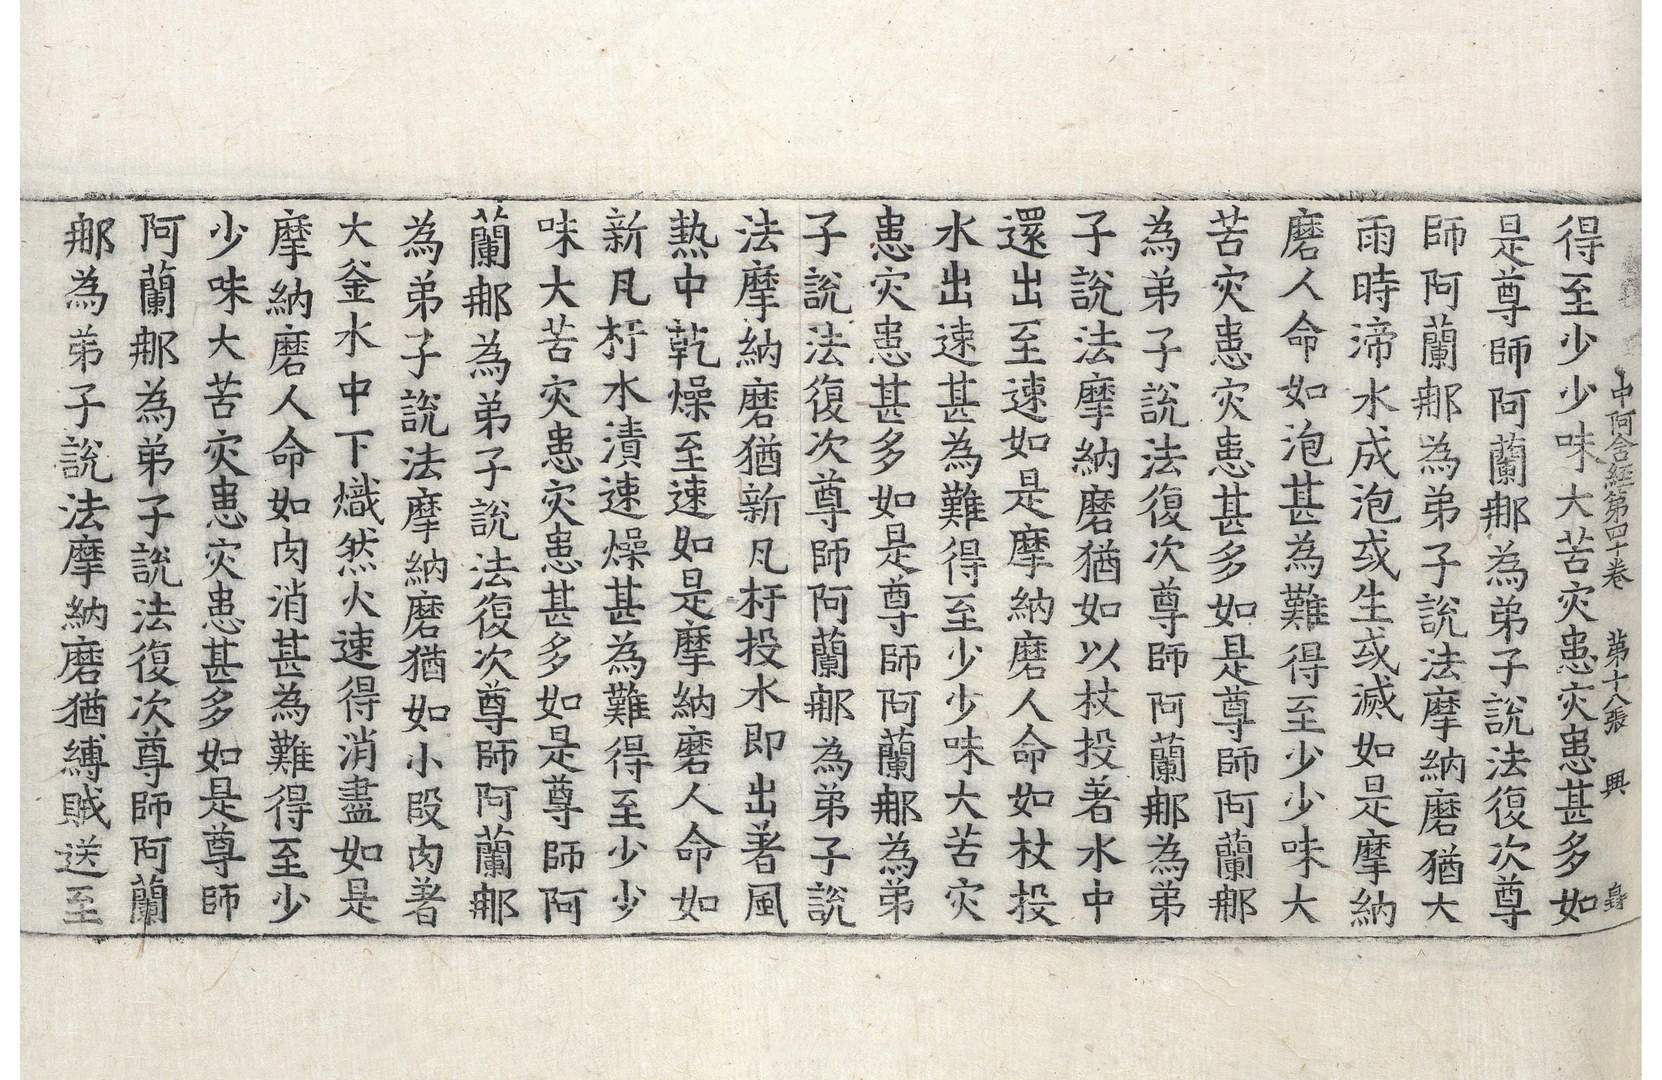 中阿含經第四十卷 第十八張 興
得至少少味大苦灾患灾患甚多如
是尊師阿蘭那為弟子說法復次尊
師阿蘭那為弟子說法摩納磨猶大
雨時渧水成泡或生或滅如是摩納
磨人命如泡甚為難得至少少味大
苦灾患灾患甚多如是尊師阿蘭那
為弟子說法復次尊師阿蘭那為弟
子說法摩納磨猶如以杖投著水中
還出至速如是摩納磨人命如杖投
水出速甚為難得至少少味大苦灾
患灾患甚多如是尊師阿蘭那為弟
子說法復次尊師阿蘭那為弟子說
法摩納磨猶新凡杅投水即出著風
熱中乾燥至速如是摩納磨人命如
新凡杅水漬速燥甚為難得至少少
味大苦灾患灾患甚多如是尊師阿
蘭那為弟子說法復次尊師阿蘭那
為弟子說法摩納磨猶如小段肉著
大釜水中下熾然火速得消盡如是
摩納磨人命如肉消甚為難得至少
少味大苦灾患灾患甚多如是尊師
阿蘭那為弟子說法復次尊師阿蘭
那為弟子說法摩納磨猶縛賊送至